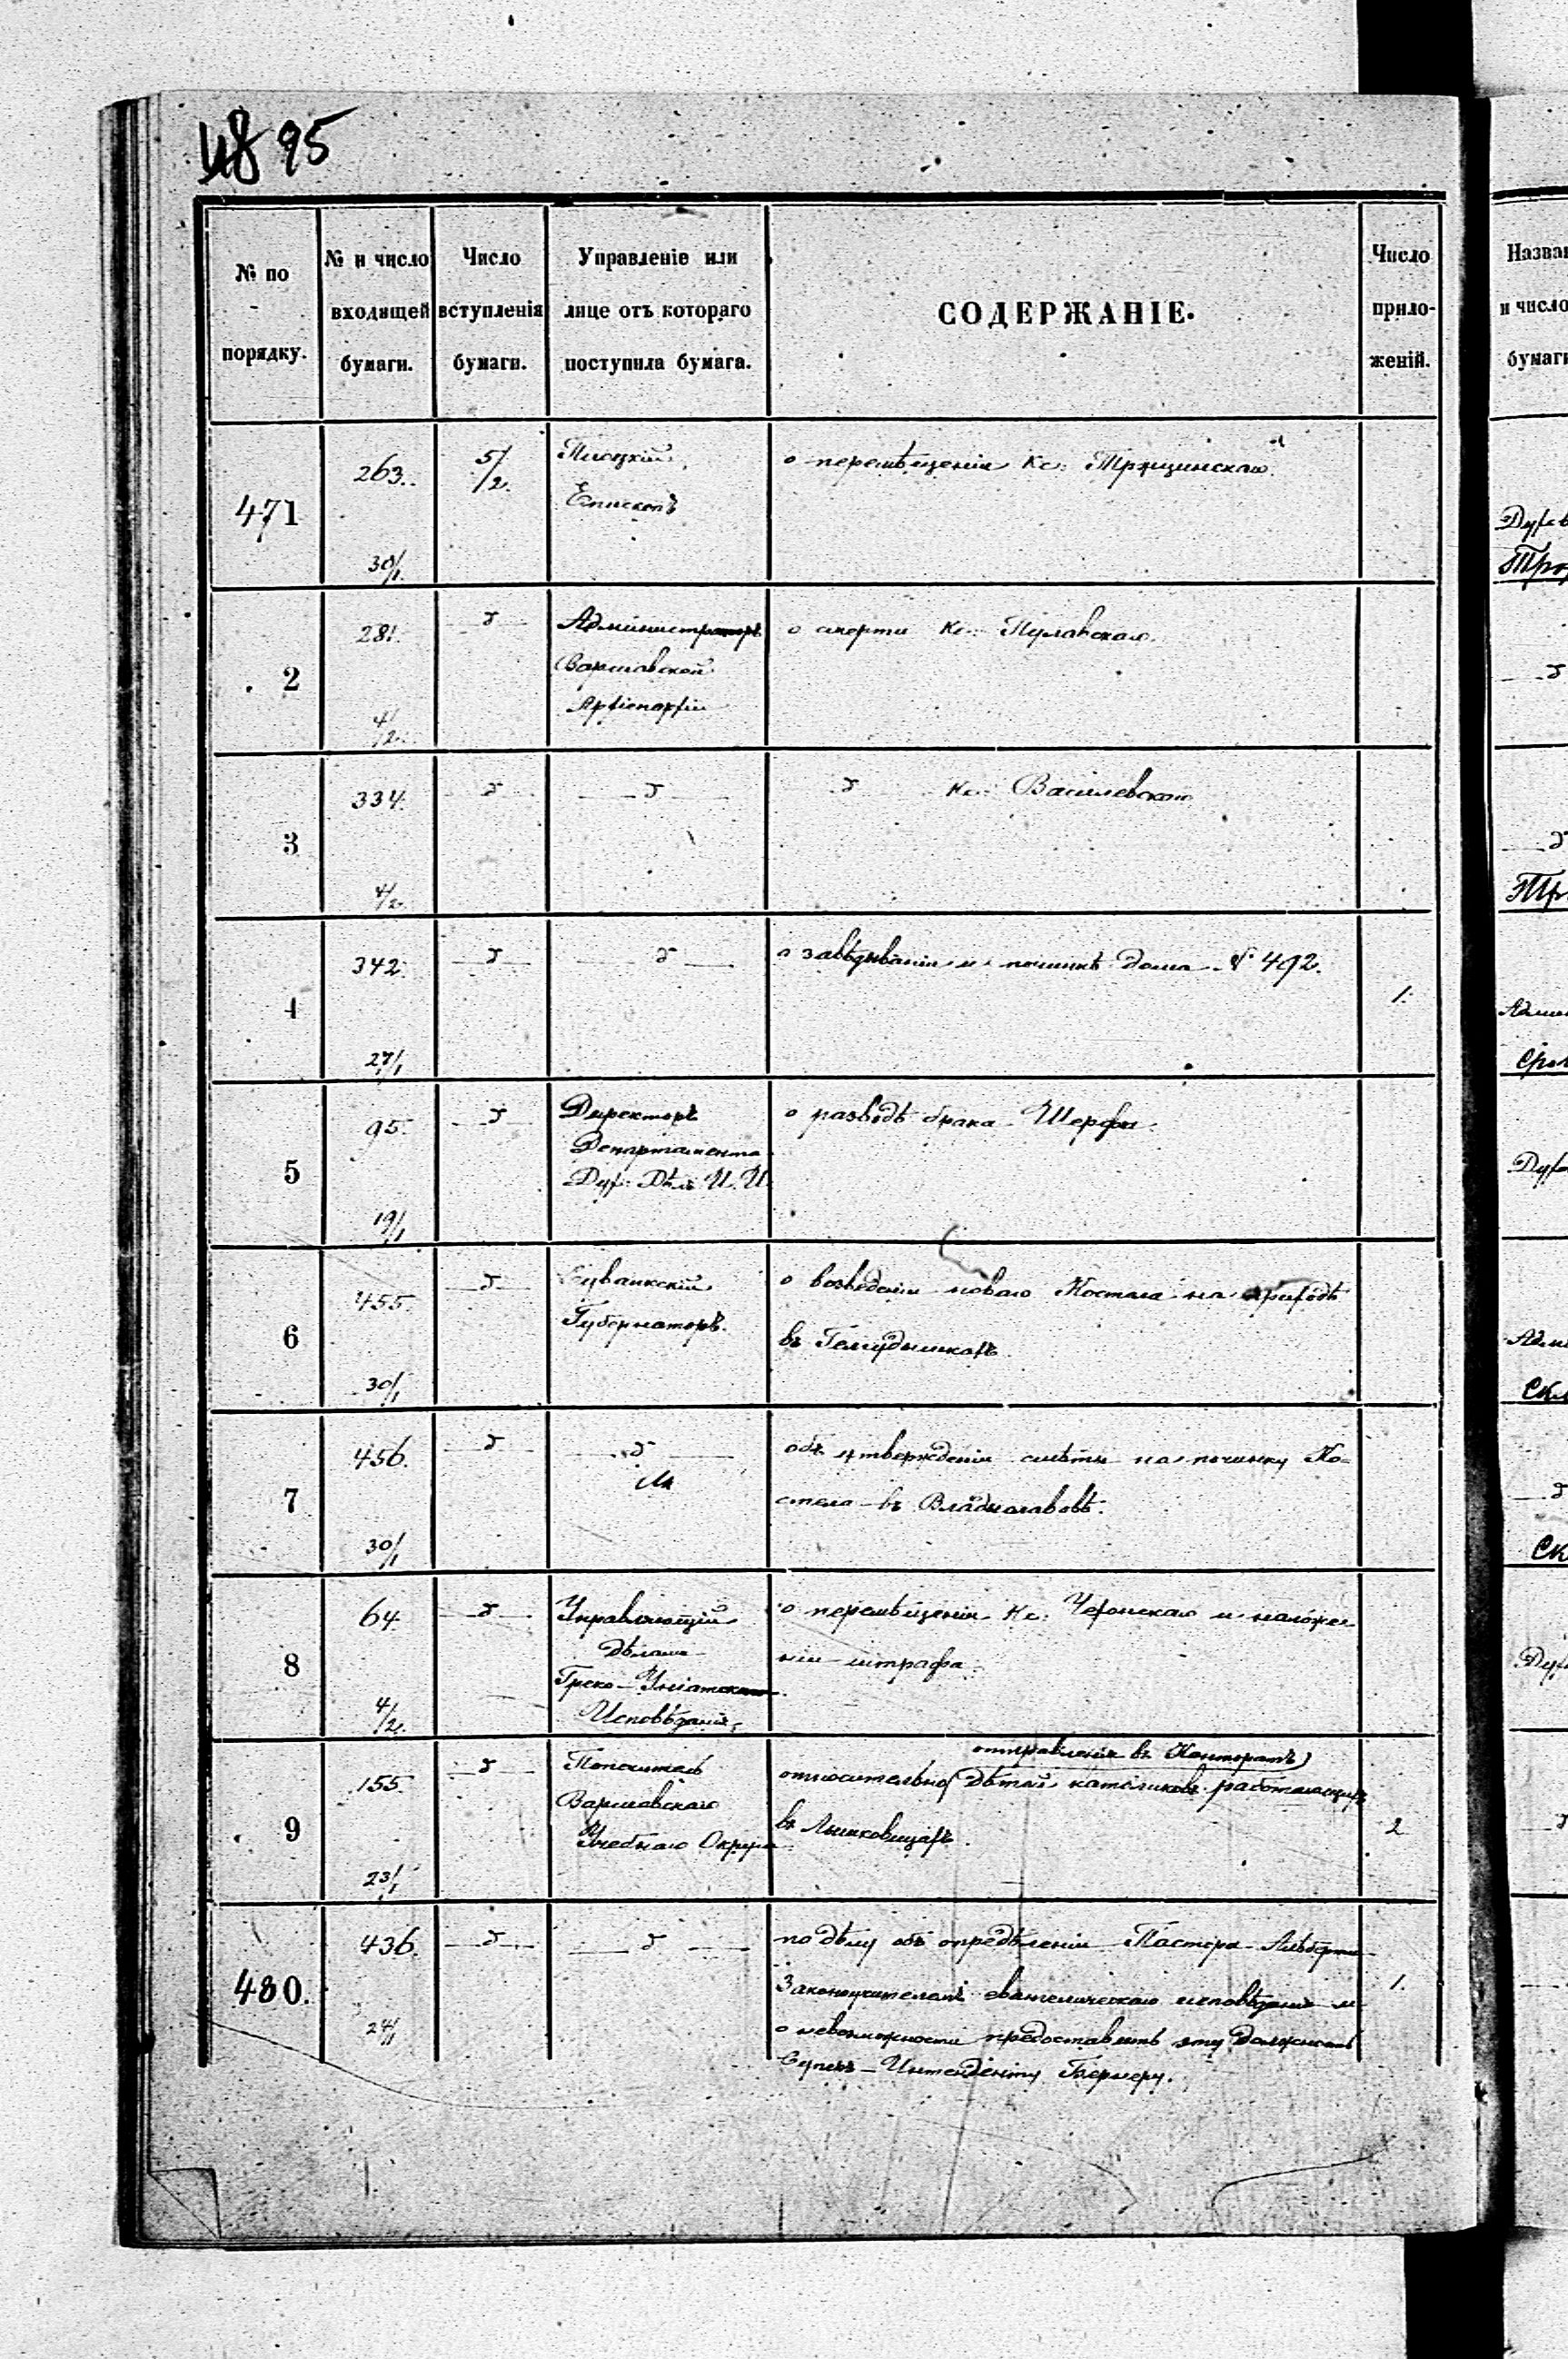 48 95
№ по порядку.
№ и число входящей бумаги.
Число вступленія бумаги.
Управленіе или лице отъ котораго поступила бумага.
СОДЕРЖАНІЕ.
Число приложеній.
471
263.
30/1.
5/2.
Плоцкій
Епископъ
о перемѣщеніи Кс: Тржцинскаго
2
281.
4/2.
д
Администраторъ
Варшавской
Архіепархіи
о смерти Кс: Пулавскаго.
3
334.
4/2.
д
д
д Кс: Василевскаго
4
342.
27/1
д
д
о завѣдываніи и починкѣ дома № 492.
1.
5
95.
19/1
д
Директоръ
Департамента
Дух. Дѣлъ И. И.
о разводѣ брака Шерфа
6
455.
30/1
д
Сувалкскій
Губернаторъ.
о возведеніи новаго Костела на приходѣ
въ
7
456.
30/1
д
д
объ утвержденіи смѣты на починку Ко-
стела въ Владиславовѣ.
8
64.
4/2.
д
Управляющій
дѣлами
Греко-Уніатскаго
Исповѣданія
о перемѣщеніи Кс: и наложе-
ніи штрафа.
9
155.
23/1
д
Попечитель
Варшавскаго
Учебнаго Округа
отправленія въ
относительно дѣтей католиковъ работающихъ
въ Лышковицахъ.
2
480.
436.
24/1
д
д
по дѣлу объ опредѣленіи Пастора
Законоучителемъ евангелическаго исповѣданія и
о невозможности предоставить эту должность
Супер-Интенденту Бернеру.
1.
Назван
и число
бумаги
Дух
д
д
Адми
Дух
Адми
д
Дух
д